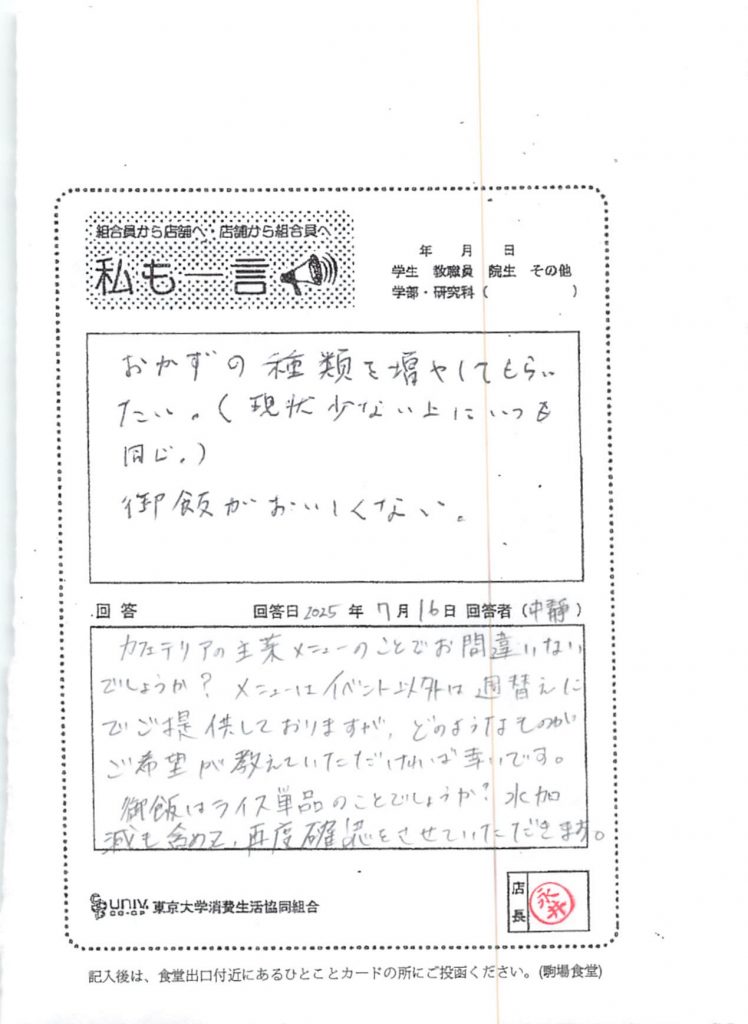 組合員から店舗へ・店舗から組合員へ
私も一言
年 月 日
学生 教職員 院生 その他
学部・研究科( )
おかずの種類を増やしてもらい
たい。(現状少ない上にいつも
同じ。)
御飯がおいしくない。
回答 回答日 2025 年 7月 16日 回答者 (中静)
カフェテリアの主菜メニューのことでお間違いない
でしょうか? メニューはイベント以外は週替えに
でご提供しておりますが、どのようなものが
ご希望が教えていただければ幸いです。
御飯はライス単品のことでしょうか? 水加
減も含めて、再度確認をさせていただきます。
UNIV. CO-OP 東京大学消費生活協同組合
店長
記入後は、食堂出口付近にあるひとことカードの所にご投函ください。(駒場食堂)